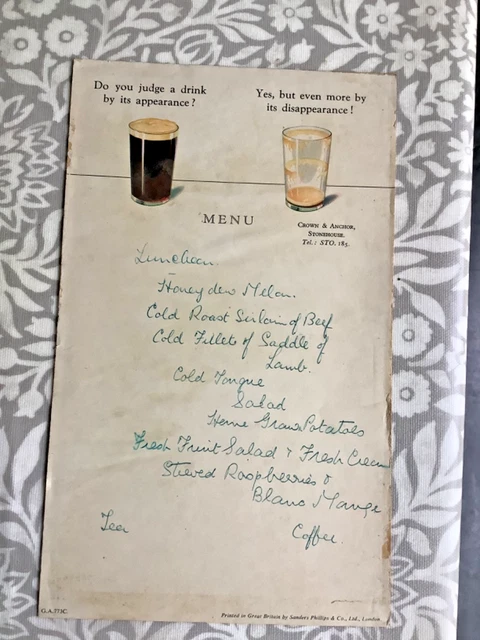 Do you judge a drink
by its appearance?
Yes, but even more by
its disappearance!
MENU
CROWN & ANCHOR,
STONEHOUSE.
Tel.: STO. 185.
Luncheon.
Honeydew Melon.
Cold Roast Sirloin of Beef
Cold Fillets of Saddle of
Lamb.
Cold Tongue
Salad
Home Grown Potatoes
Fresh Fruit Salad & Fresh Cream
Stewed Raspberries &
Blanc Mange
Tea
Coffee.
G.A.573C
Printed in Great Britain by Sanders Phillips & Co., Ltd., London